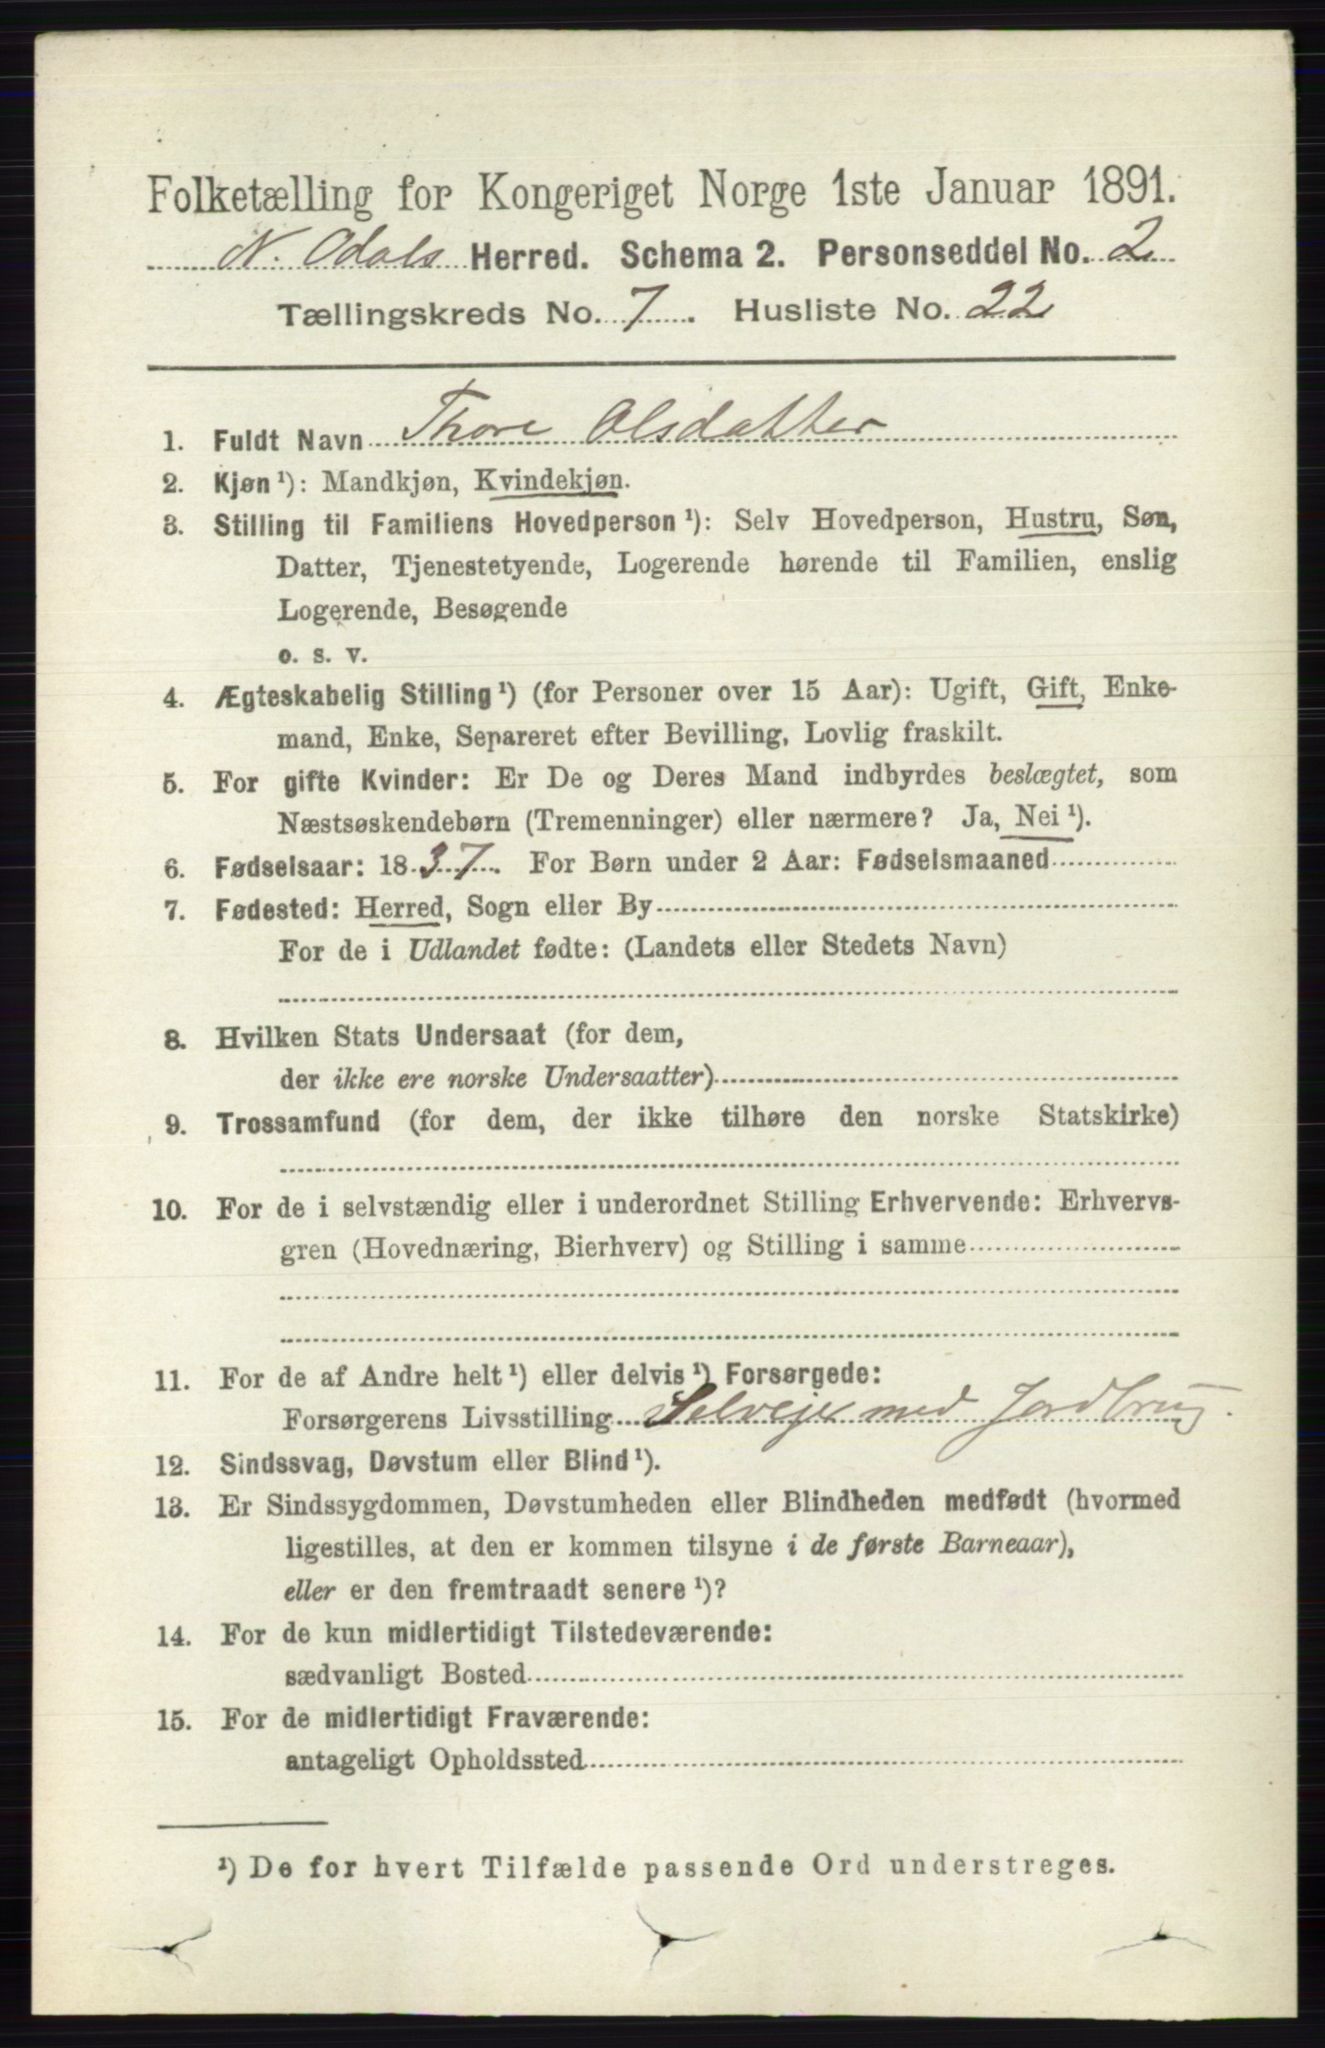 Folketælling for Kongeriget Norge 1ste Januar 1891.
N. Odals Herred. Schema 2. Personseddel No. 2
Tællingskreds No. 7. Husliste No. 22
1. Fuldt Navn Thore Olsdatter
2. Kjøn ¹): Mandkjøn, Kvindekjøn.
3. Stilling til Familiens Hovedperson ¹): Selv Hovedperson, Hustru, Søn,
Datter, Tjenestetyende, Logerende hørende til Familien, enslig
Logerende, Besøgende
o. s. v.
4. Ægteskabelig Stilling ¹) (for Personer over 15 Aar): Ugift, Gift, Enke-
mand, Enke, Separeret efter Bevilling, Lovlig fraskilt.
5. For gifte Kvinder: Er De og Deres Mand indbyrdes beslægtet, som
Næstsøskendebørn (Tremenninger) eller nærmere? Ja, Nei ¹).
6. Fødselsaar: 1837. For Børn under 2 Aar: Fødselsmaaned
7. Fødested: Herred, Sogn eller By
For de i Udlandet fødte: (Landets eller Stedets Navn)
8. Hvilken Stats Undersaat (for dem,
der ikke ere norske Undersaatter)
9. Trossamfund (for dem, der ikke tilhøre den norske Statskirke)
10. For de i selvstændig eller i underordnet Stilling Erhvervende: Erhvervs-
gren (Hovednæring, Bierhverv) og Stilling i samme
11. For de af Andre helt ¹) eller delvis ¹) Forsørgede:
Forsørgerens Livsstilling Selvejer med Jordbrug.
12. Sindssvag, Døvstum eller Blind ¹).
13. Er Sindssygdommen, Døvstumheden eller Blindheden medfødt (hvormed
ligestilles, at den er kommen tilsyne i de første Barneaar),
eller er den fremtraadt senere ¹)?
14. For de kun midlertidigt Tilstedeværende:
sædvanligt Bosted
15. For de midlertidigt Fraværende:
antageligt Opholdssted
¹) De for hvert Tilfælde passende Ord understreges.